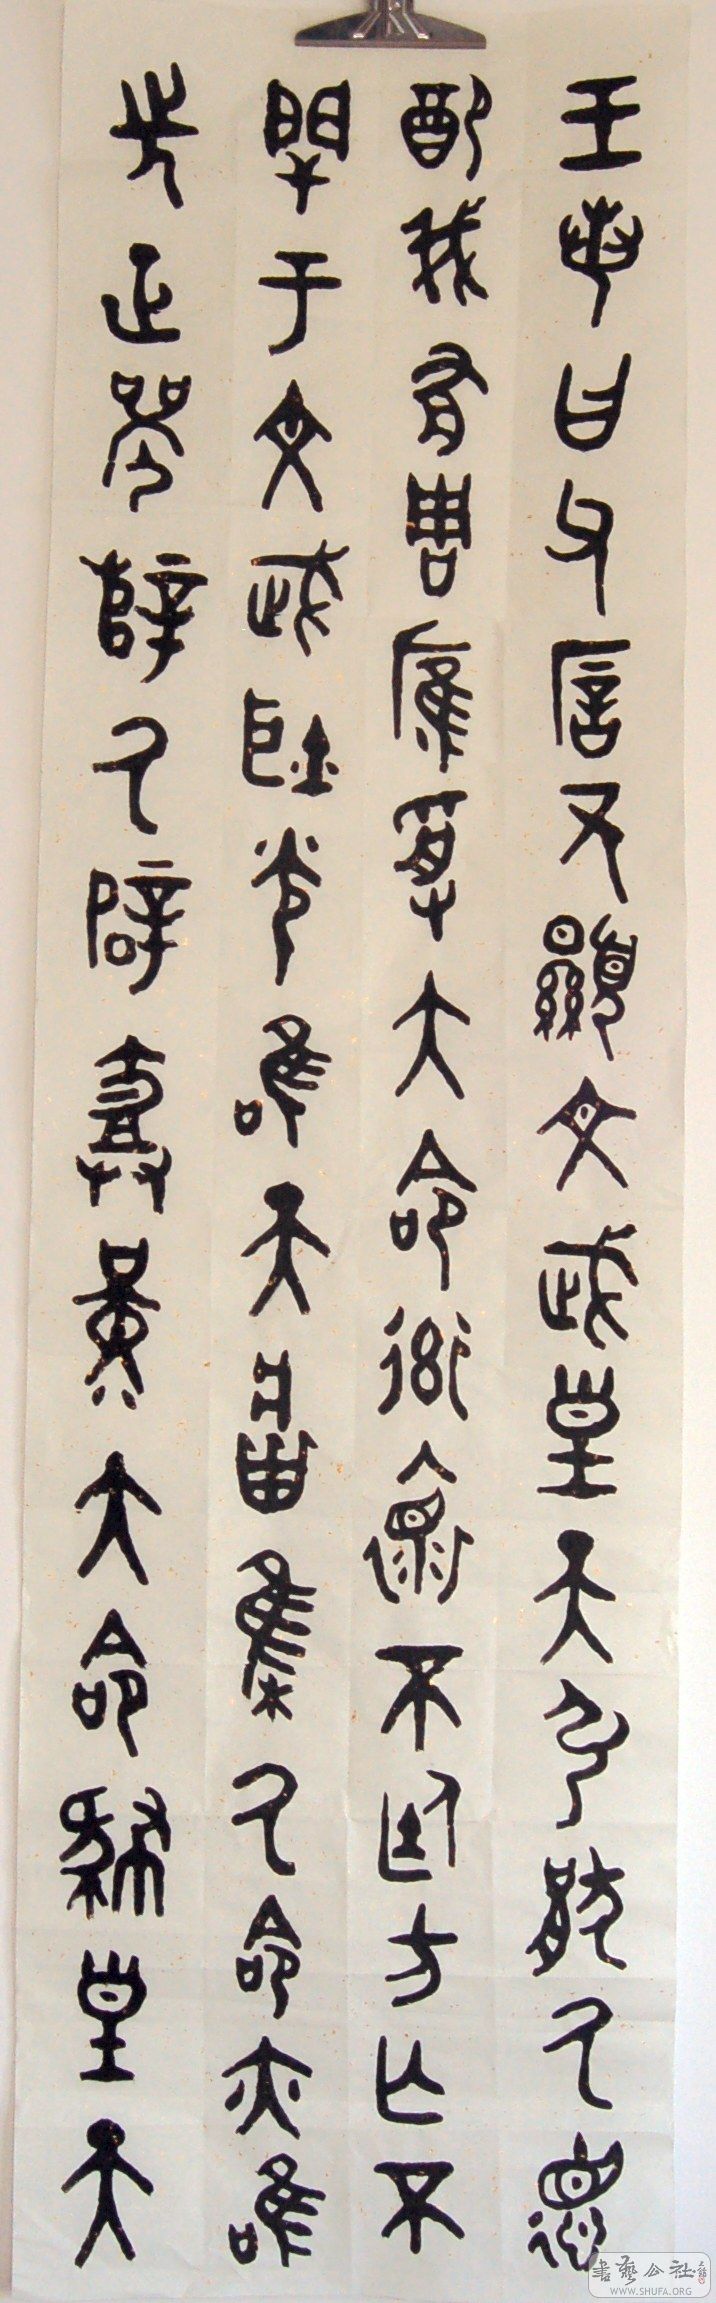 王若曰父厝不顯文武皇天引猒氒德
配我有周膺受大命率懷不廷方亡不
閈于文武耿光唯天將集氒命亦唯
先正襄辥氒辟堇大命肄皇天
書藝公社
WWW.SHUFA.ORG